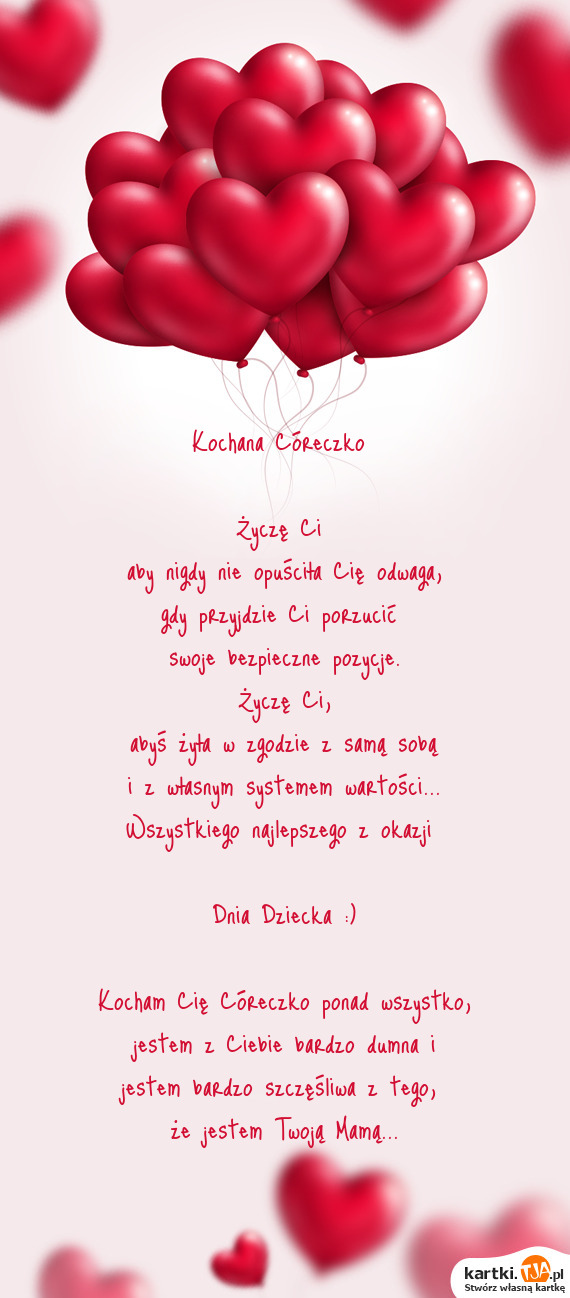 Kochana Córeczko
Życzę Ci
aby nigdy nie opuściła Cię odwaga,
gdy przyjdzie Ci porzucić
swoje bezpieczne pozycje.
Życzę Ci,
abyś żyła w zgodzie z samą sobą
i z własnym systemem wartości...
Wszystkiego najlepszego z okazji
Dnia Dziecka :)
Kocham Cię Córeczko ponad wszystko,
jestem z Ciebie bardzo dumna i
jestem bardzo szczęśliwa z tego,
że jestem Twoją Mamą...
kartki.TJA.pl
Stwórz własną kartkę